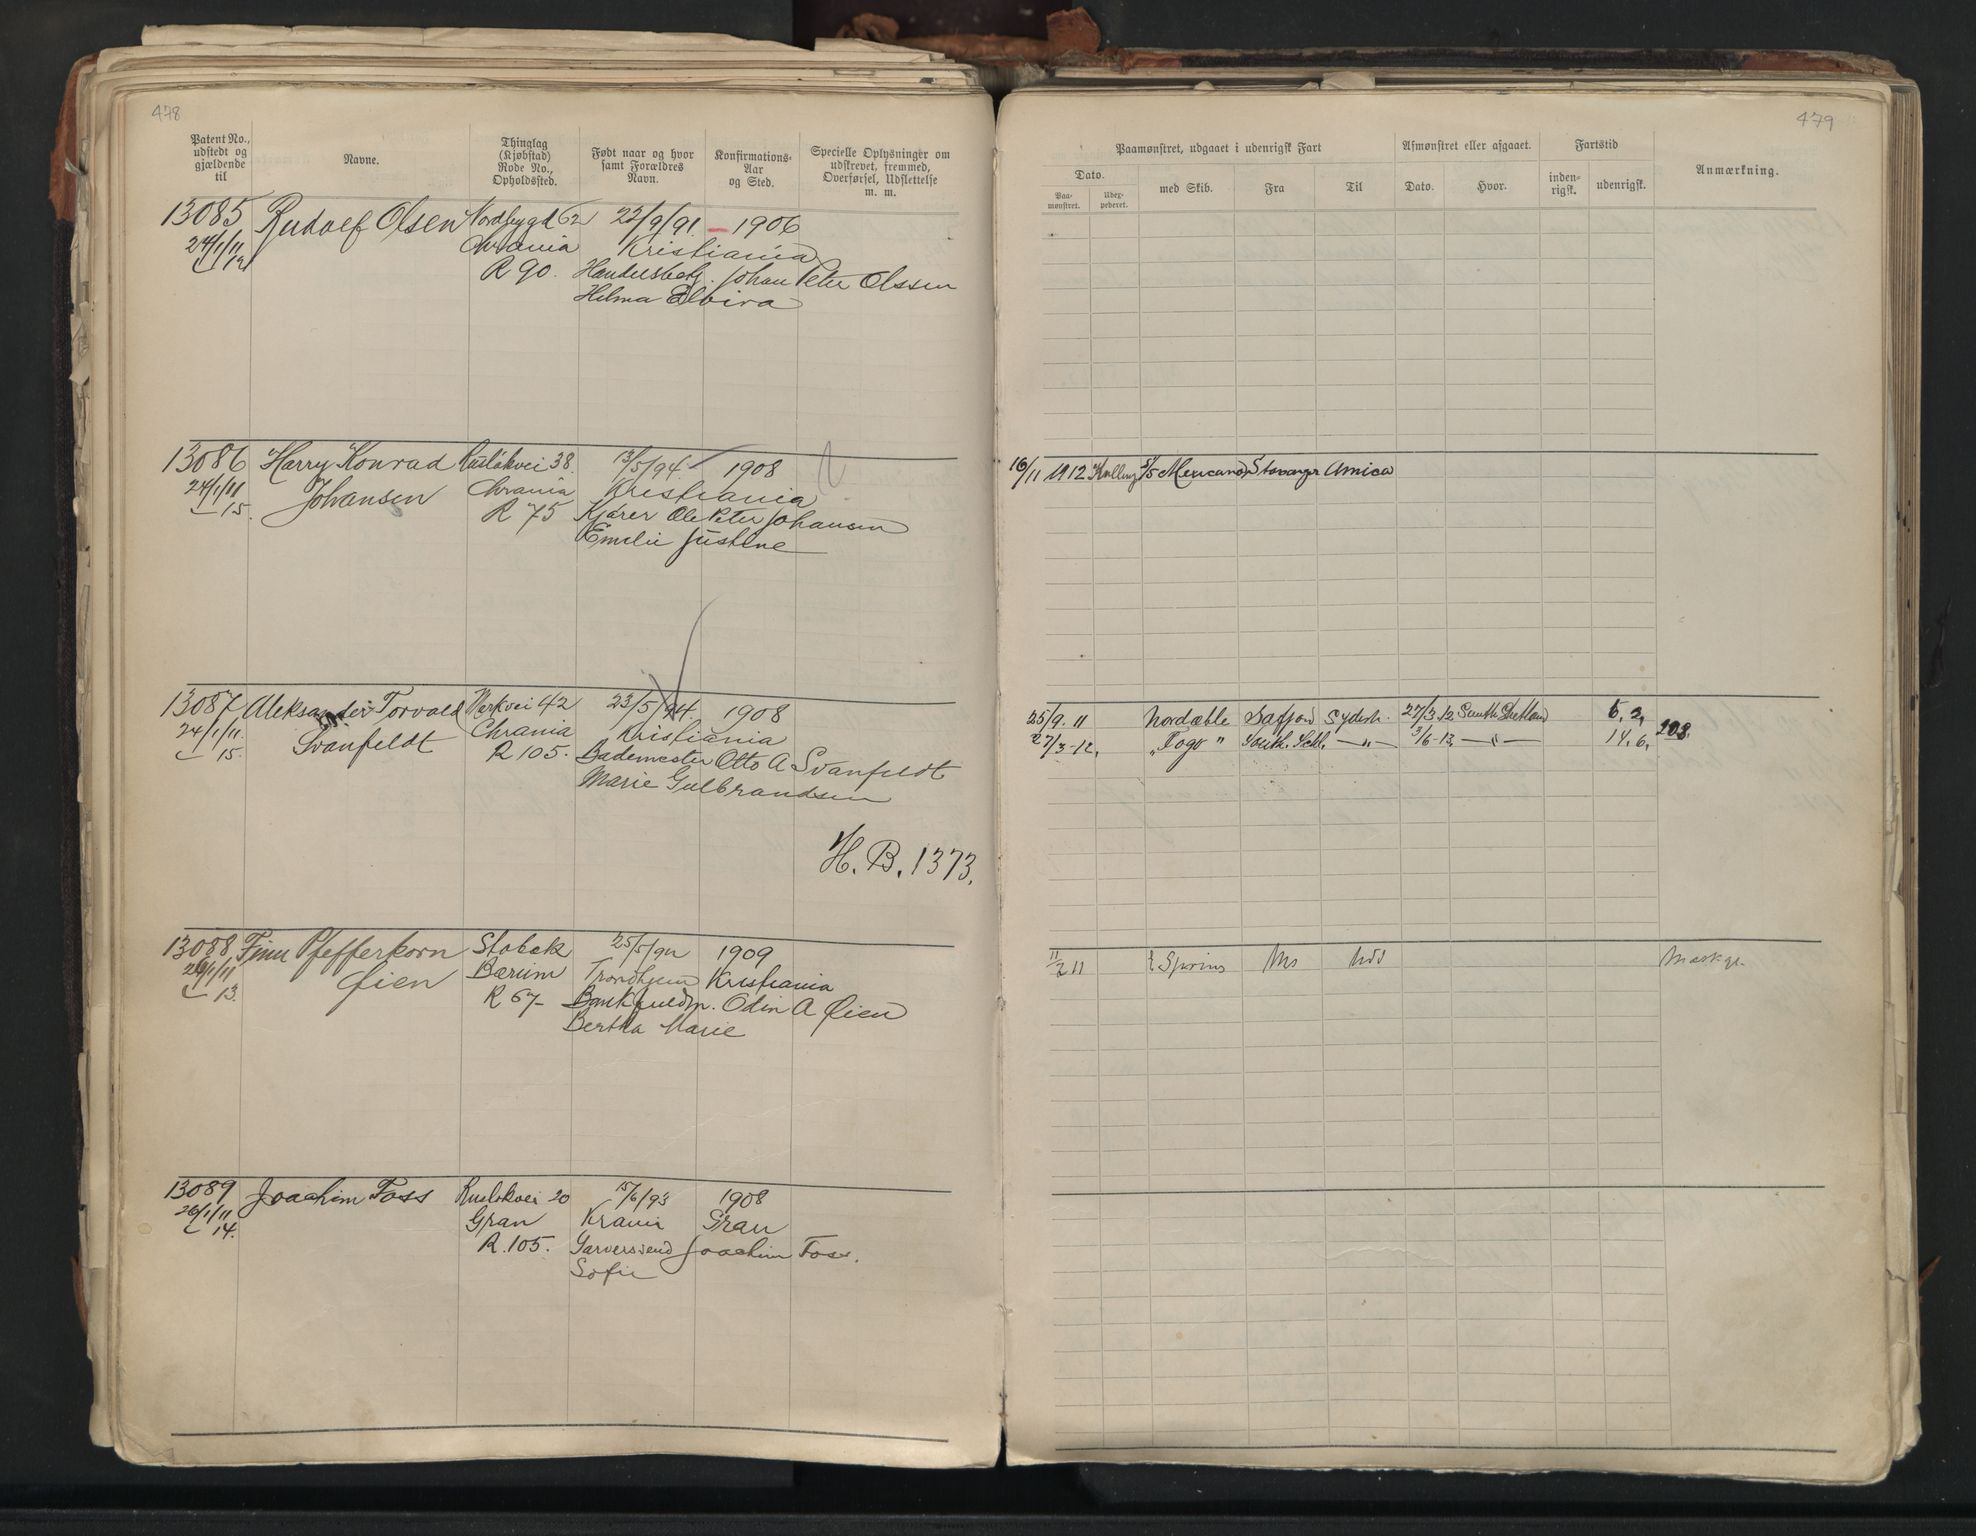 478
Patent No., udstedt og gjældende til
Navne.
Thinglag (Kjøbstad) Rode No., Opholdssted.
Født naar og hvor samt Forældres Navn.
Konfirmations-Aar og Sted.
Specielle Oplysninger om udskrevet, fremmed, Overførsel, Udslettelse m. m.
13085 Rudolf Olsen Nordbygd 62 22/9/91 – 1906
24/1/11 Chrania Kristiania
12 R 90. Johan Peter Olssen
Helma Elvira
13086 Harry Konrad Ruslökvei 38. 13/5/94 1908
24/1/11 Johansen Chrania Kristiania
15. R 75 Kjører Ole Peter Johansen
Emelie Justine
13087 Aleksander Torvald Verkvei 42 23/5/94. 1908
24/1/11. Svanfeldt Chrania Kristiania
15. R 105. Bademester Otto A Svanfeldt
Marie Gulbrandsen
H. B. 1373.
13088 Finn Pfefferkorn Stabæk 1909
Øien Bærum Trondhjem Kristiania
13. R 67 Odin A Øien
Bertha Marie
13089 Joachim Foss Ruslökvei 20 15/6/93 1908
26/1/11 Gran Krania Gran
14. R. 105. Garversvend Joachim Foss.
Sofie
479
Paamønstret, udgaaet i udenrigsk Fart
Afmønstret eller afgaaet.
Fartstid
Anmærkning.
Dato.
Paa-mønstret.
Udex-pederet.
med Skib.
Fra
Til
Dato.
Hvor.
inden-rigsk.
udenrigsk.
16/11 1912 S/S Mexicano Stavanger Amica
25/9. 11 Sydish. 27/3.12 South Shetland 6. 2,
27/3-12, "Fogo" South. Schl. —„— 3/6-13, —„— 14. 6, 203.
11/2 11